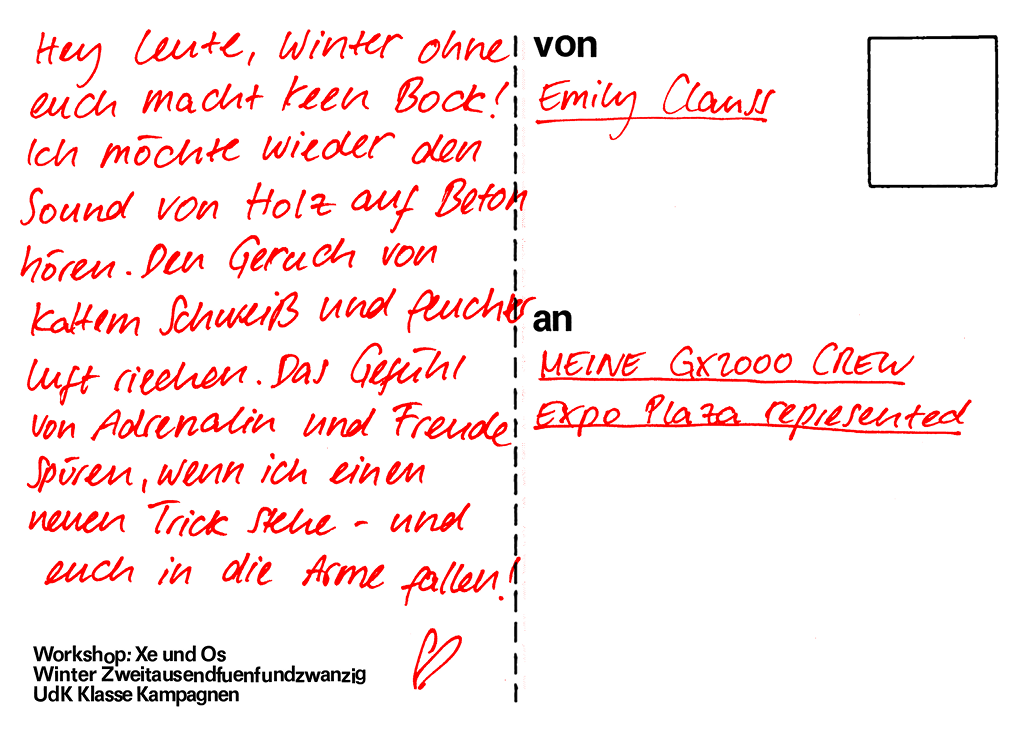 Hey Leute, Winter ohne
euch macht keen Bock!
Ich möchte wieder den
Sound von Holz auf Beton
hören. Den Geruch von
kaltem Schweiß und feuchter
Luft riechen. Das Gefühl
von Adrenalin und Freude
spüren, wenn ich einen
neuen Trick stehe - und
euch in die Arme fallen!
Workshop: Xe und Os
Winter Zweitausendfuenfundzwanzig
UdK Klasse Kampagnen
von
Emily Clauss
an
MEINE GX2000 CREW
Expo Plaza represented